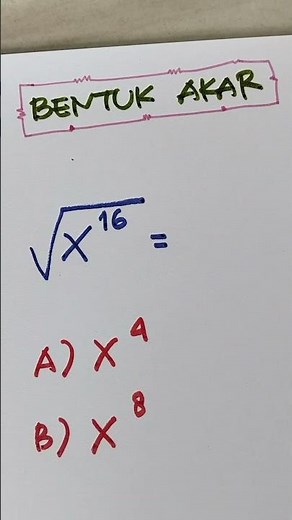 BENTUK AKAR
√x¹⁶ =
A) x⁴
B) x⁸